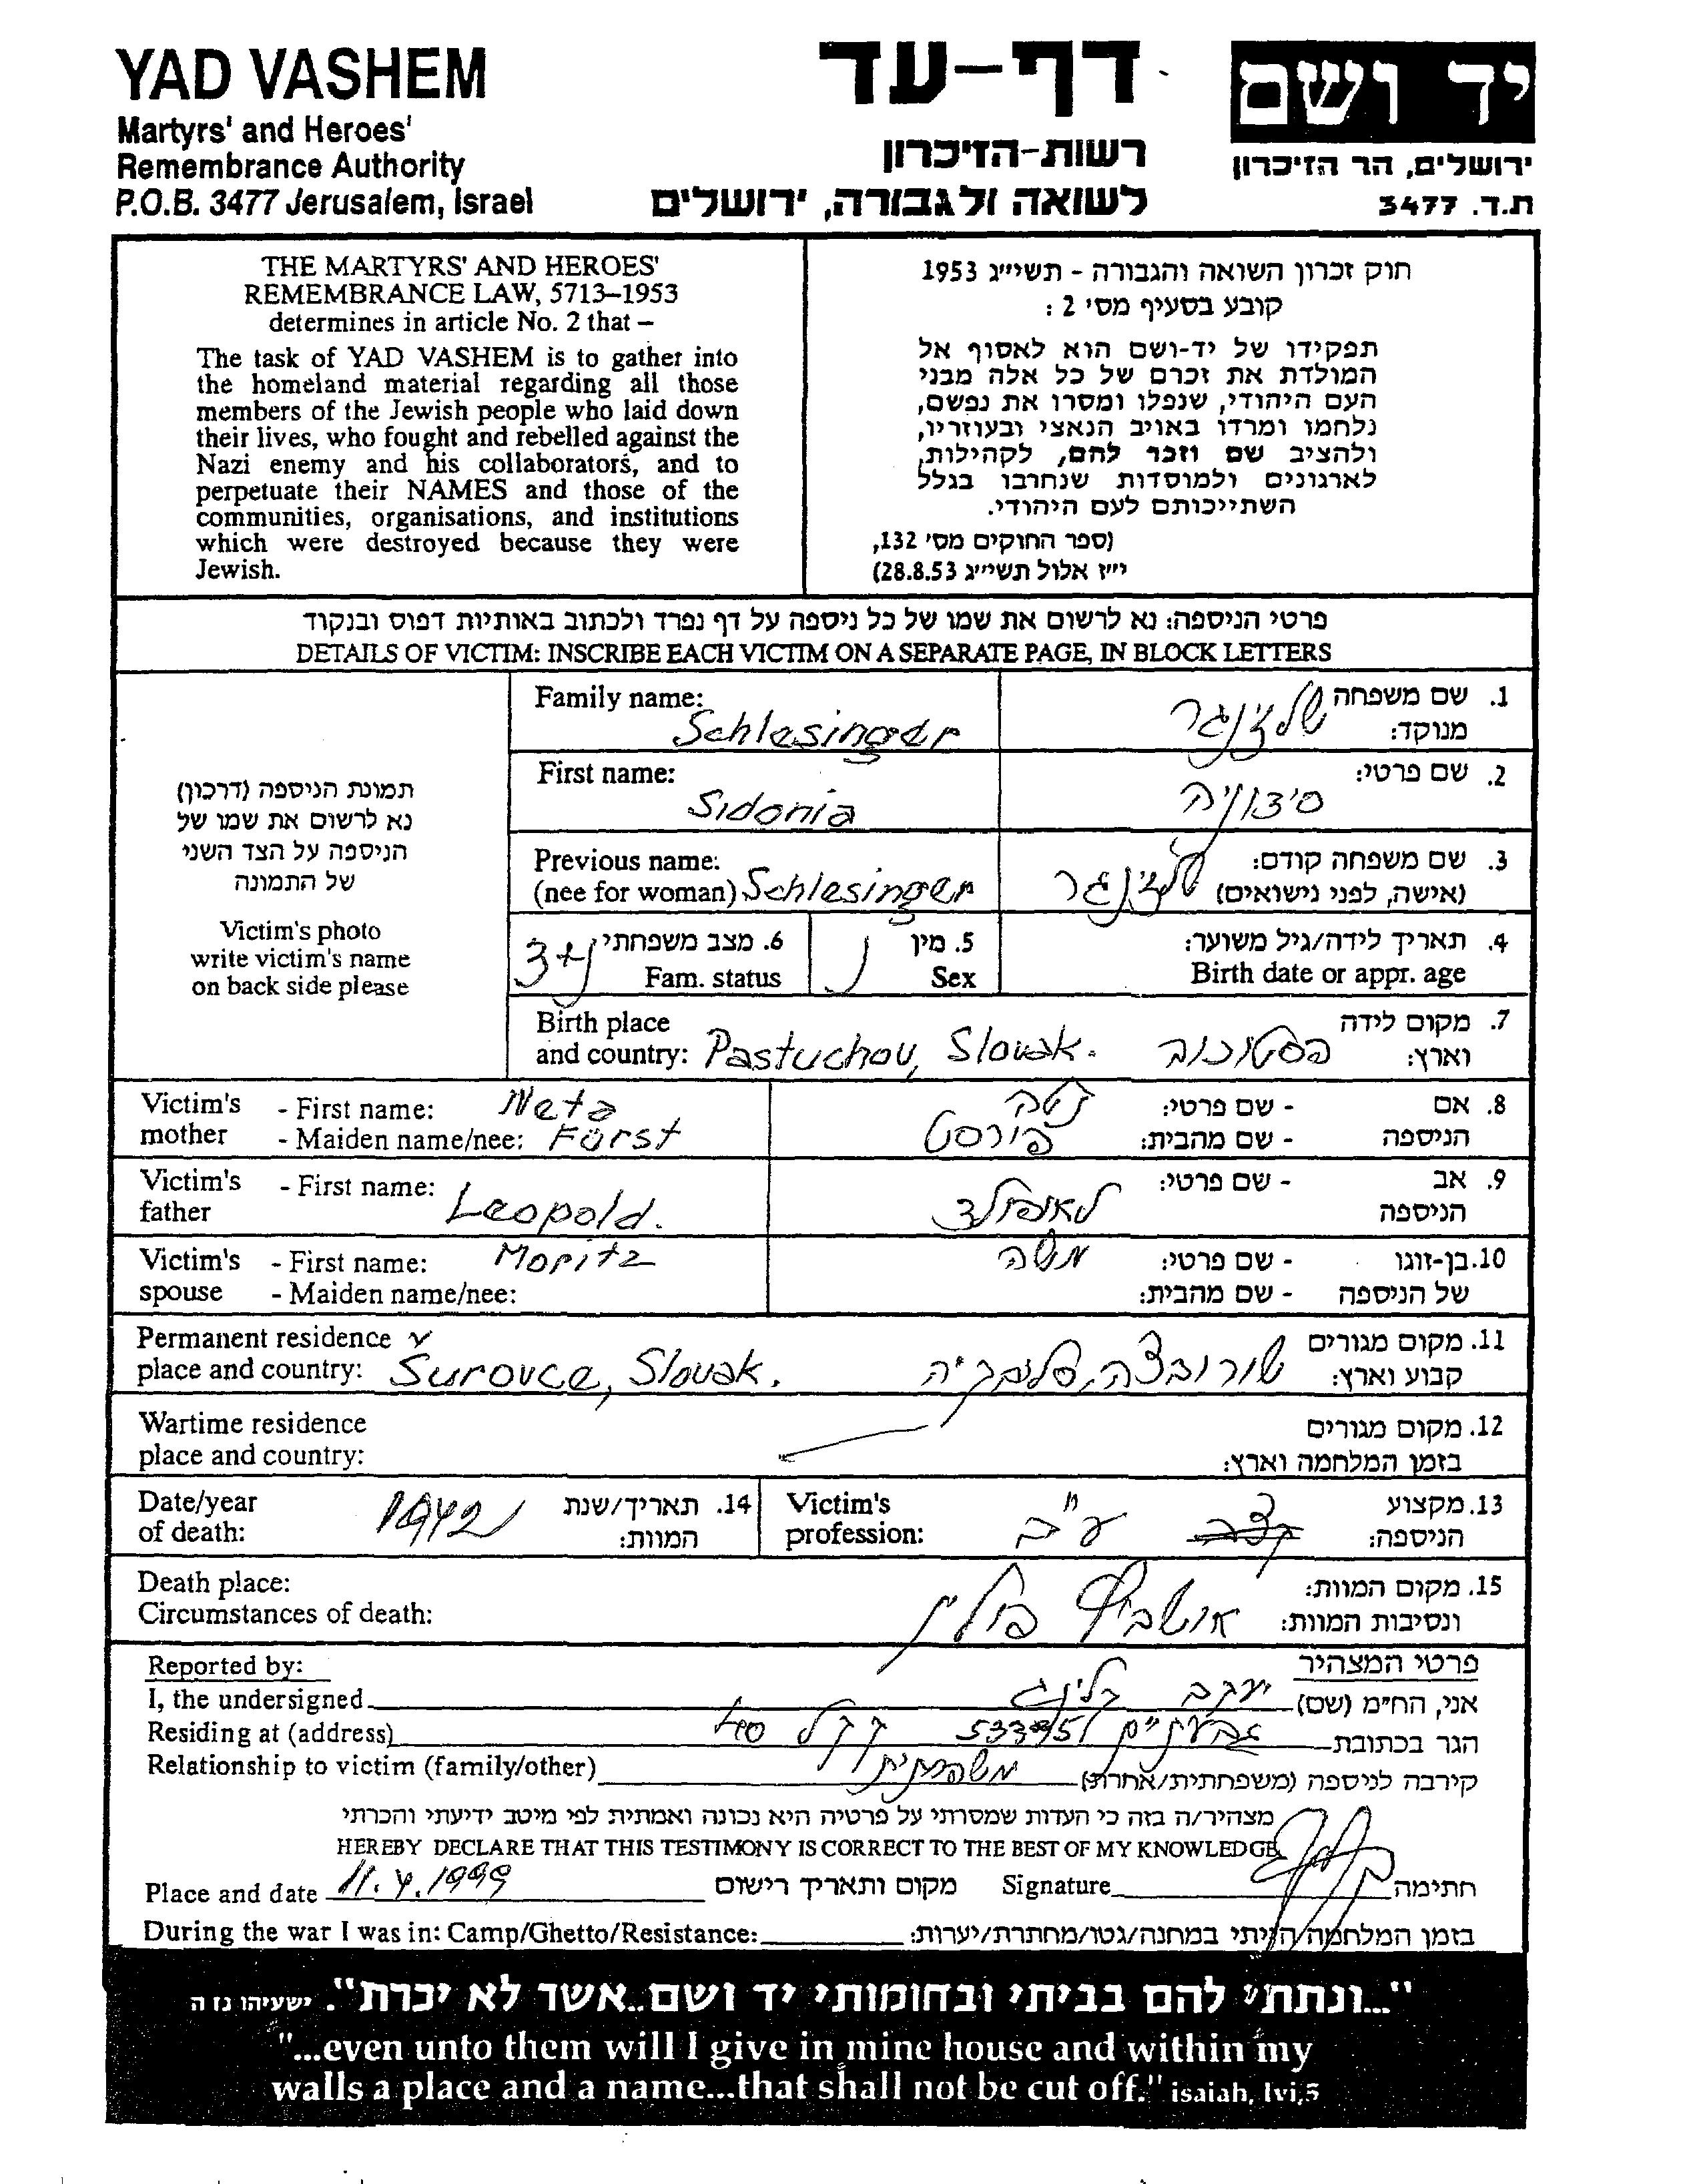 YAD VASHEM
Martyrs' and Heroes'
Remembrance Authority
P.O.B. 3477 Jerusalem, Israel
דף-עד
רשות-הזיכרון
לשואה ולגבורה, ירושלים
יד ושם
ירושלים, הר הזיכרון
ת.ד. 3477
THE MARTYRS' AND HEROES'
REMEMBRANCE LAW, 5713–1953
determines in article No. 2 that –
The task of YAD VASHEM is to gather into
the homeland material regarding all those
members of the Jewish people who laid down
their lives, who fought and rebelled against the
Nazi enemy and his collaborators, and to
perpetuate their NAMES and those of the
communities, organisations, and institutions
which were destroyed because they were
Jewish.
חוק זכרון השואה והגבורה - תשי״ג 1953
קובע בסעיף מס' 2 :
תפקידו של יד-ושם הוא לאסוף אל
המולדת את זכרם של כל אלה מבני
העם היהודי, שנפלו ומסרו את נפשם,
נלחמו ומרדו באויב הנאצי ובעוזריו,
ולהציב שם וזכר להם, לקהילות,
לארגונים ולמוסדות שנחרבו בגלל
השתייכותם לעם היהודי.
(ספר החוקים מס' 132,
י״ז אלול תשי״ג 28.8.53)
פרטי הניספה: נא לרשום את שמו של כל ניספה על דף נפרד ולכתוב באותיות דפוס ובנקוד
DETAILS OF VICTIM: INSCRIBE EACH VICTIM ON A SEPARATE PAGE, IN BLOCK LETTERS
תמונת הניספה (דרכון)
נא לרשום את שמו של
הניספה על הצד השני
של התמונה
Victim's photo
write victim's name
on back side please
Family name: Schlesinger
1. שם משפחה מנוקד: שלזינגר
First name: Sidonia
2. שם פרטי: סידוניה
Previous name:
(nee for woman) Schlesinger
3. שם משפחה קודם:
(אישה, לפני נישואים) שלזינגר
4. תאריך לידה/גיל משוער:
Birth date or appr. age
5. מין
Sex
6. מצב משפחתי
Fam. status
נ+3
Birth place
and country: Pastuchov, Slovak.
7. מקום לידה
וארץ: פסטוכוב
Victim's mother - First name: Neta
- Maiden name/nee: Fürst
8. אם הניספה - שם פרטי: נטה
- שם מהבית: פירסט
Victim's father - First name: Leopold.
9. אב הניספה - שם פרטי: לאופולד
Victim's spouse - First name: Moritz
- Maiden name/nee:
10. בן-זוגו של הניספה - שם פרטי: משה
- שם מהבית:
Permanent residence
place and country: Šurovce, Slovak.
11. מקום מגורים
קבוע וארץ: שורובצה, סלובקיה
Wartime residence
place and country:
12. מקום מגורים
בזמן המלחמה וארץ:
Date/year
of death: 1942
14. תאריך/שנת
המוות:
Victim's
profession:
13. מקצוע
הניספה: עק״ב
Death place:
Circumstances of death:
15. מקום המוות:
ונסיבות המוות: אושביץ פולין
Reported by:
פרטי המצהיר
I, the undersigned
אני, הח״מ (שם) יעקב
Residing at (address)
הגר בכתובת גבעתיים
Relationship to victim (family/other)
קירבה לניספה (משפחתית/אחרת) משפחתית
מצהיר/ה בזה כי העדות שמסרתי על פרטיה היא נכונה ואמתית לפי מיטב ידיעתי והכרתי
HEREBY DECLARE THAT THIS TESTIMONY IS CORRECT TO THE BEST OF MY KNOWLEDGE
Place and date 11.4.1999 מקום ותאריך רישום Signature חתימה
During the war I was in: Camp/Ghetto/Resistance: בזמן המלחמה הייתי במחנה/גטו/מחתרת/יערות:
"...ונתתי להם בביתי ובחומותי יד ושם..אשר לא יכרת". ישעיהו נו ה
"...even unto them will I give in mine house and within my
walls a place and a name...that shall not be cut off." isaiah, lvi,5